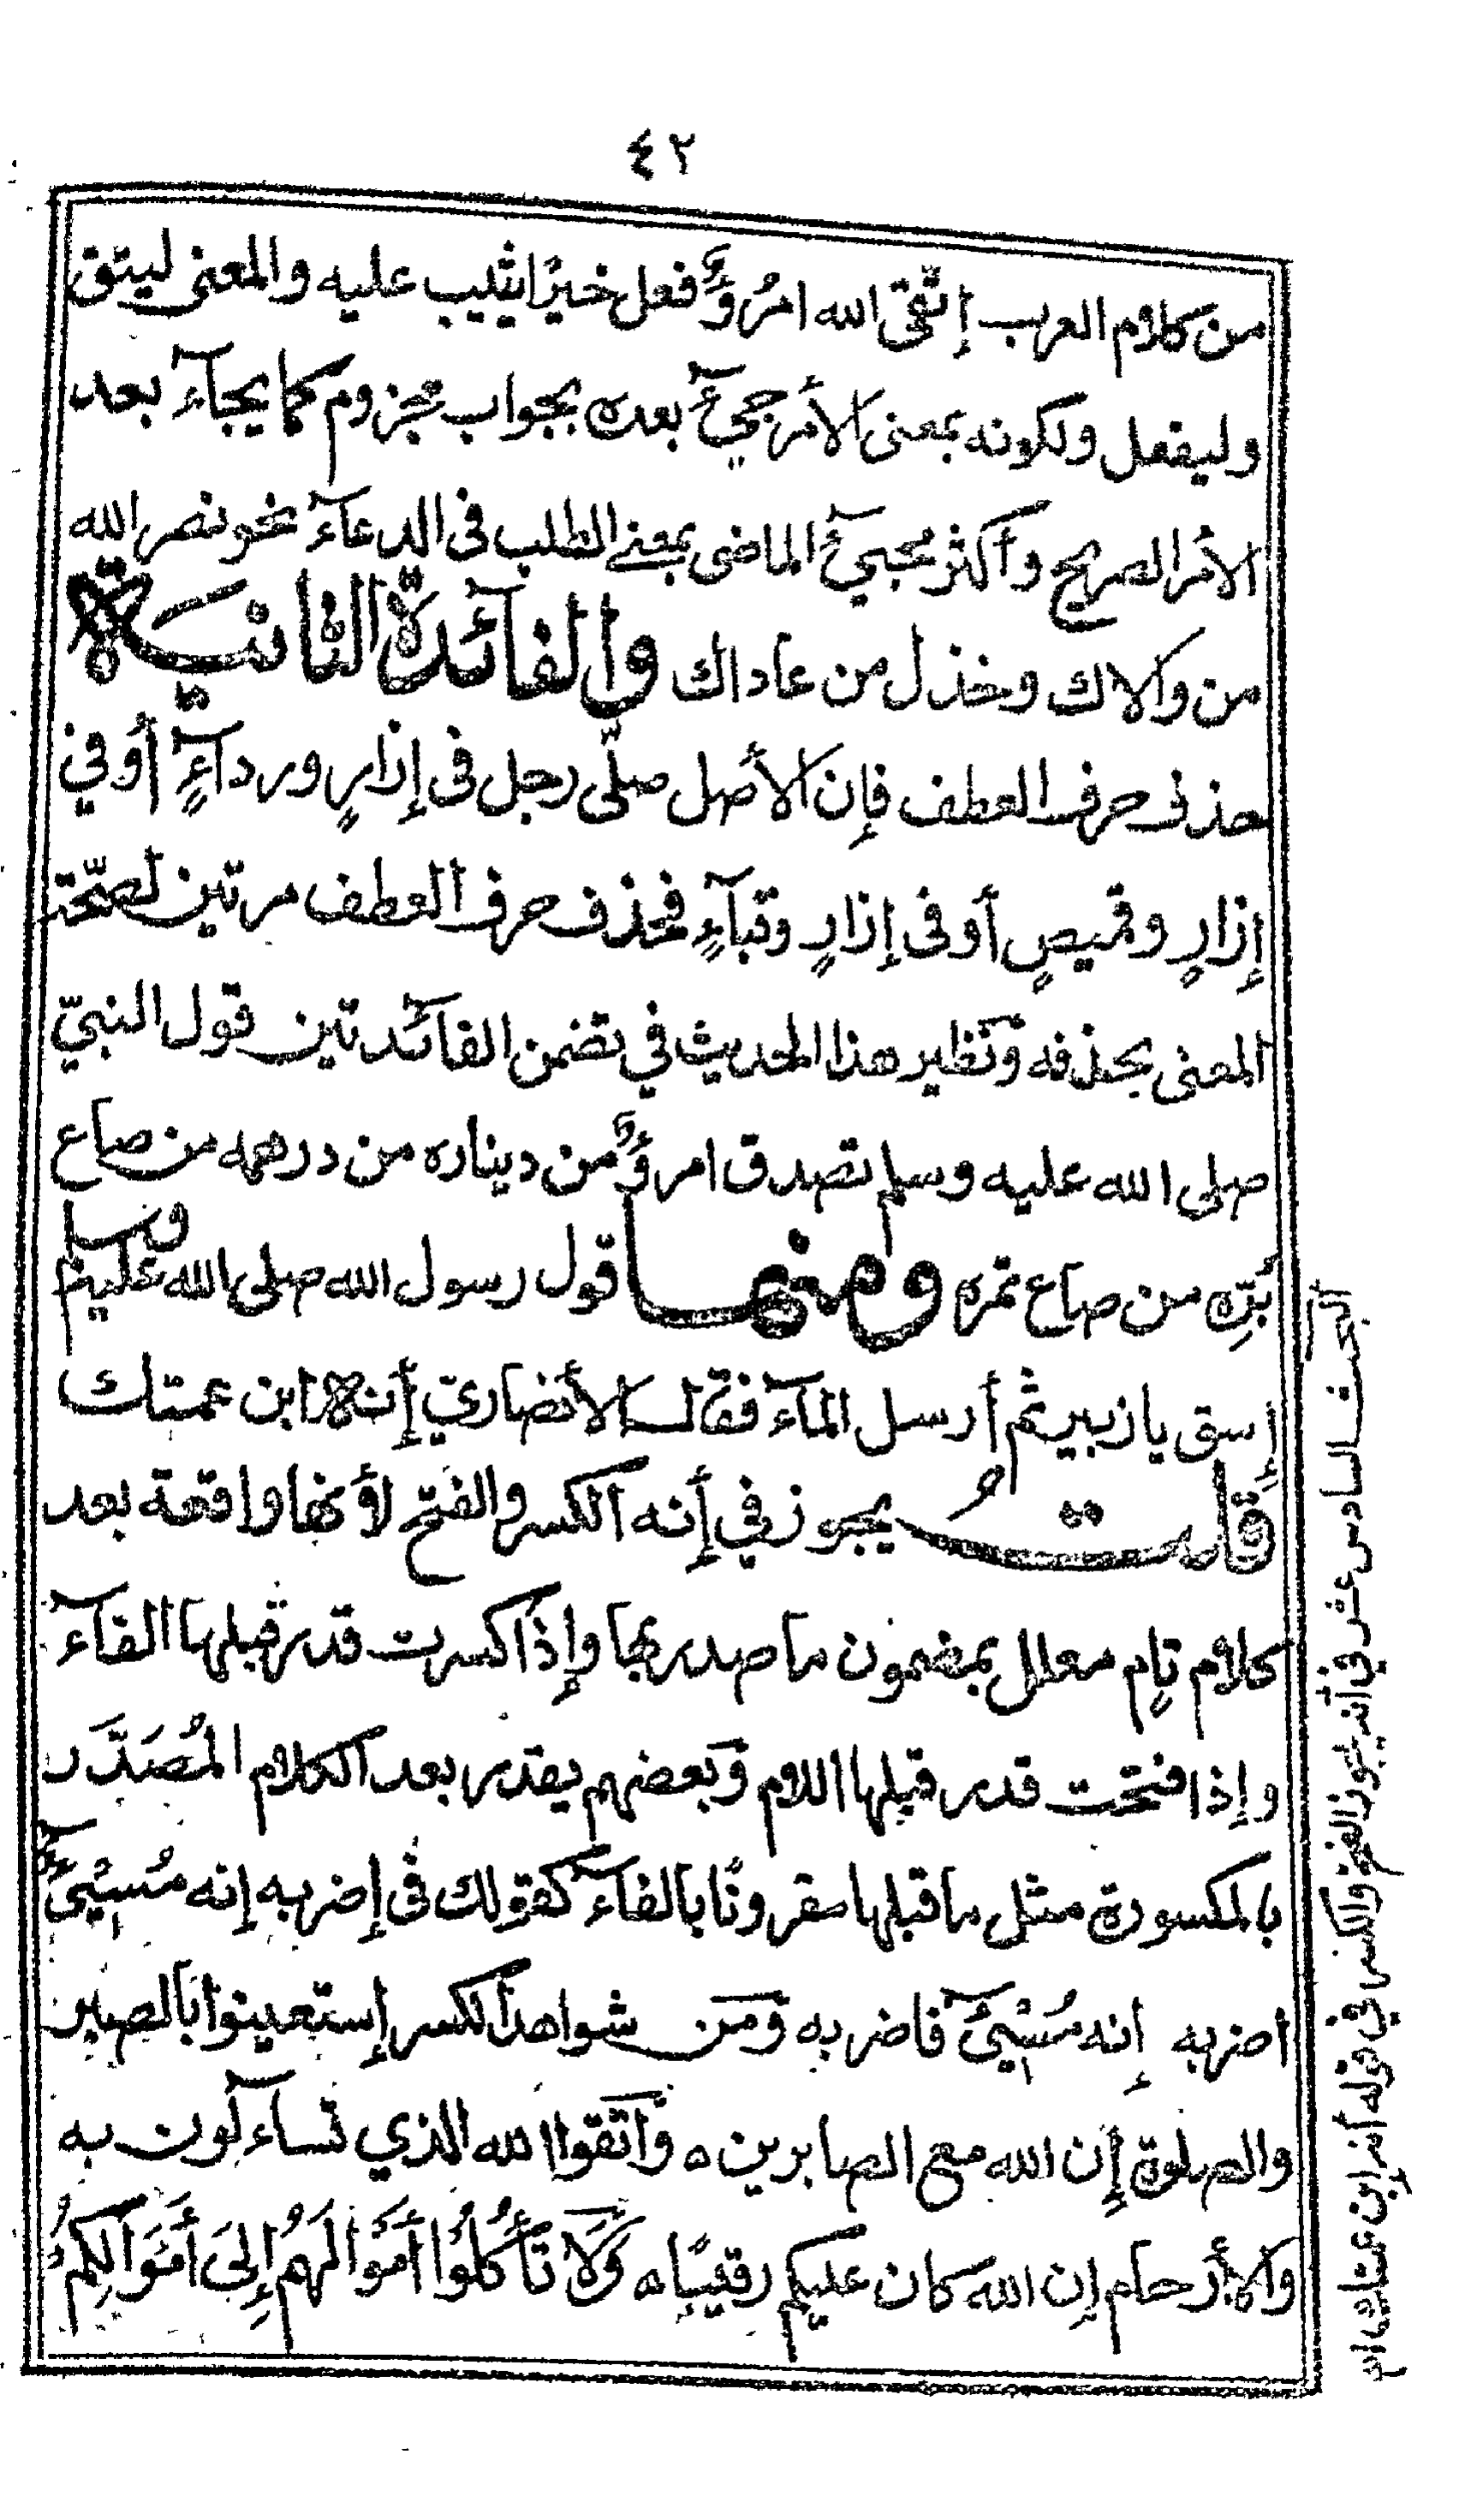 ٤٢
من كلام العرب إتّقى الله امرُؤٌ فعل خيرًا يثيب عليه والمعنى ليتق
وليفعل ولكونه بمعنى الأمر جيءَ بعده بجواب مجزوم كما يجآء بعد
الأمر الصريح وأكثر مجيءُ الماضى بمعنى الطلب فى الدعآء نحو نصر الله
من والاك وخذل من عاداك والفآئدة الثانيّة
حذف حرف العطف فإن الأصل صلّى رجل فى إزارٍ وردآءٍ أو في
إزارٍ وقميصٍ أو فى إزارٍ وقبآءٍ فحذف حرف العطف مرتين لصحّة
المعنى بحذفه ونظير هذا الحديث في تضمن الفآئدتين قول النبيّ
صلى الله عليه وسلم تصدق امرؤٌ من ديناره من درهمه من صاع
بُرّه من صاع تمره ومنها قول رسول الله صلى الله عليه وسلم
إسق يا زبير ثم أرسل المآء فقال الأنصاريّ إنه ابن عمتك
قلتُ يجوز في إنه الكسر والفتح لأنها واقعة بعد
كلام تام معلل بمضمون ما صدر بها وإذا كسرت قدر قبلها الفآء
وإذا فتحت قدر قبلها اللام وبعضهم يقدر بعد الكلام المُصَدَّر
بالمكسورة مثل ما قبلها مقرونًا بالفآء كقولك فى إضربه إنه مُسِيْئٌ
اضربه إنه مُسِيْئٌ فاضربه ومن شواهد الكسر إستعينوا بالصبر
والصلوة إن الله مع الصابرين ه واتقوا الله الذي تسآءلون به
والأرحام إن الله كان عليكم رقيبًا ه وَلَا تَأْكُلُوا أَمْوَالَهُمْ إِلَى أَمْوَالِكُمْ
البحث السادس عشر في أنه يجوز الفتح والكسر في قوله أنه ابن عمتك